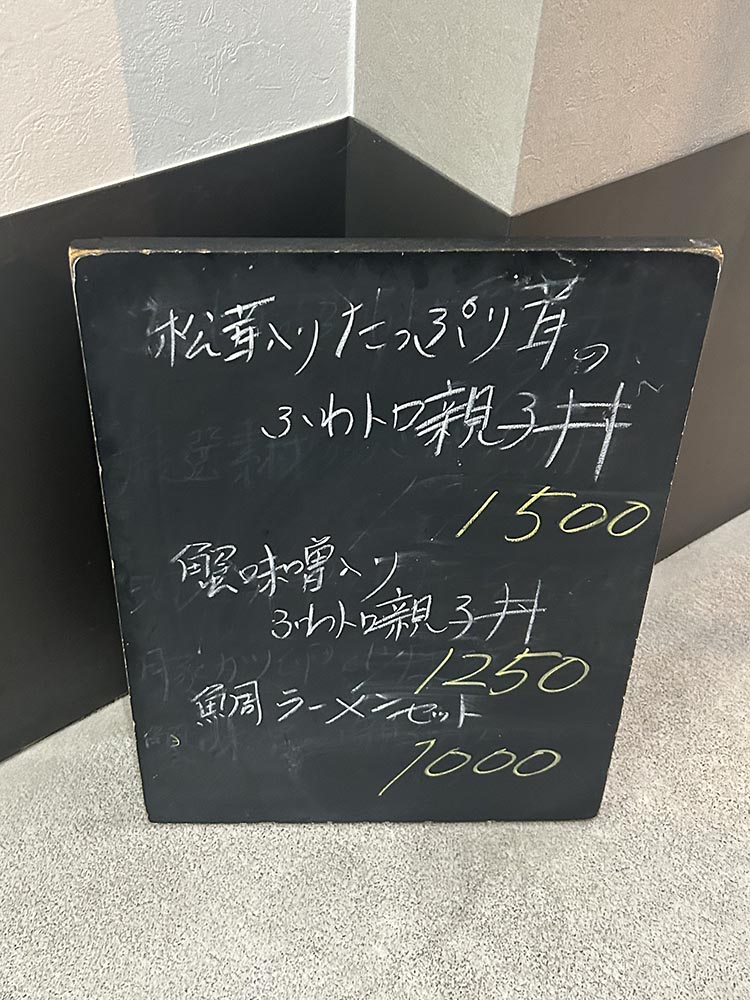 松茸入りたっぷり茸の
ふわトロ親子丼
1500
蟹味噌入り
ふわトロ親子丼
1250
鯛ラーメンセット
1000